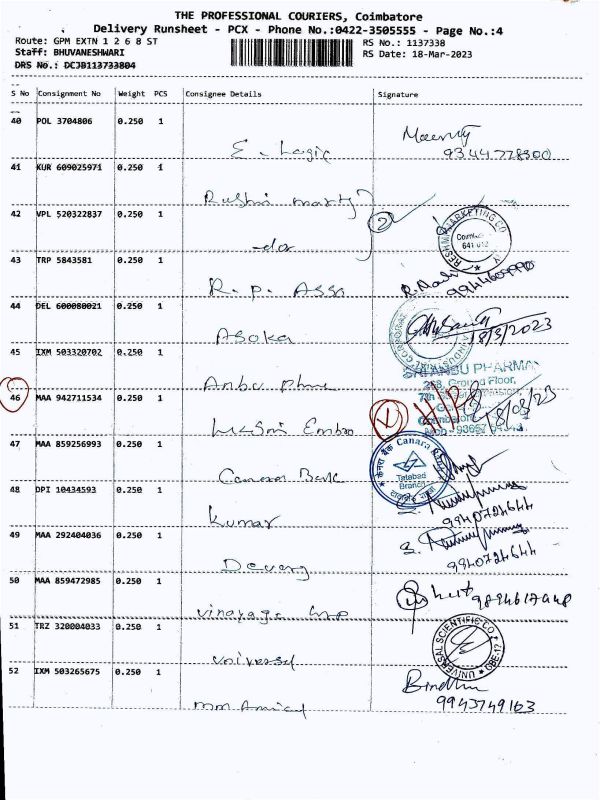 THE PROFESSIONAL COURIERS, Coimbatore
Delivery Runsheet - PCX - Phone No.:0422-3505555 - Page No.:4
Route: GPM EXTN 1 2 6 8 ST RS No.: 1137338
Staff: BHUVANESHWARI RS Date: 18-Mar-2023
DRS No.: DCJB113733804
S No Consignment No Weight PCS Consignee Details Signature
40 POL 3704806 0.250 1
E-Logic 9344778300
41 KUR 609025971 0.250 1
Rushri marty
42 VPL 520322837 0.250 1 2
-do-
43 TRP 5843581 0.250 1
R. P. Asso 9944609990
44 DEL 600080021 0.250 1
Asoka 18/3/2023
45 IXM 503320702 0.250 1
Anbu Phar SRI ANBU PHARMA
268, Ground Floor,
46 MAA 942711534 0.250 1
18/03/23
47 MAA 859256993 0.250 1
Canara Bank Canara Bank Tatabad Branch
48 DPI 10434593 0.250 1
Kumar 9940724644
49 MAA 292404036 0.250 1
Devang 9940724644
50 MAA 859472985 0.250 1
Vinayaga
51 TRZ 320004033 0.250 1
Universal UNIVERSAL SCIENTIFIC CO
52 IXM 503265675 0.250 1 Bindhu
9943749163